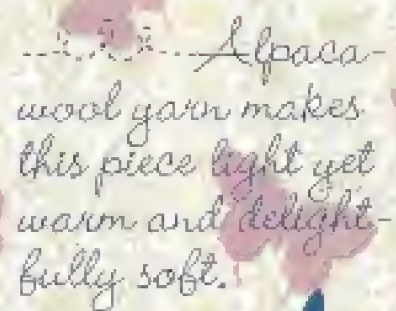 Alpaca-
wool yarn makes
this piece light yet
warm and delight-
fully soft.